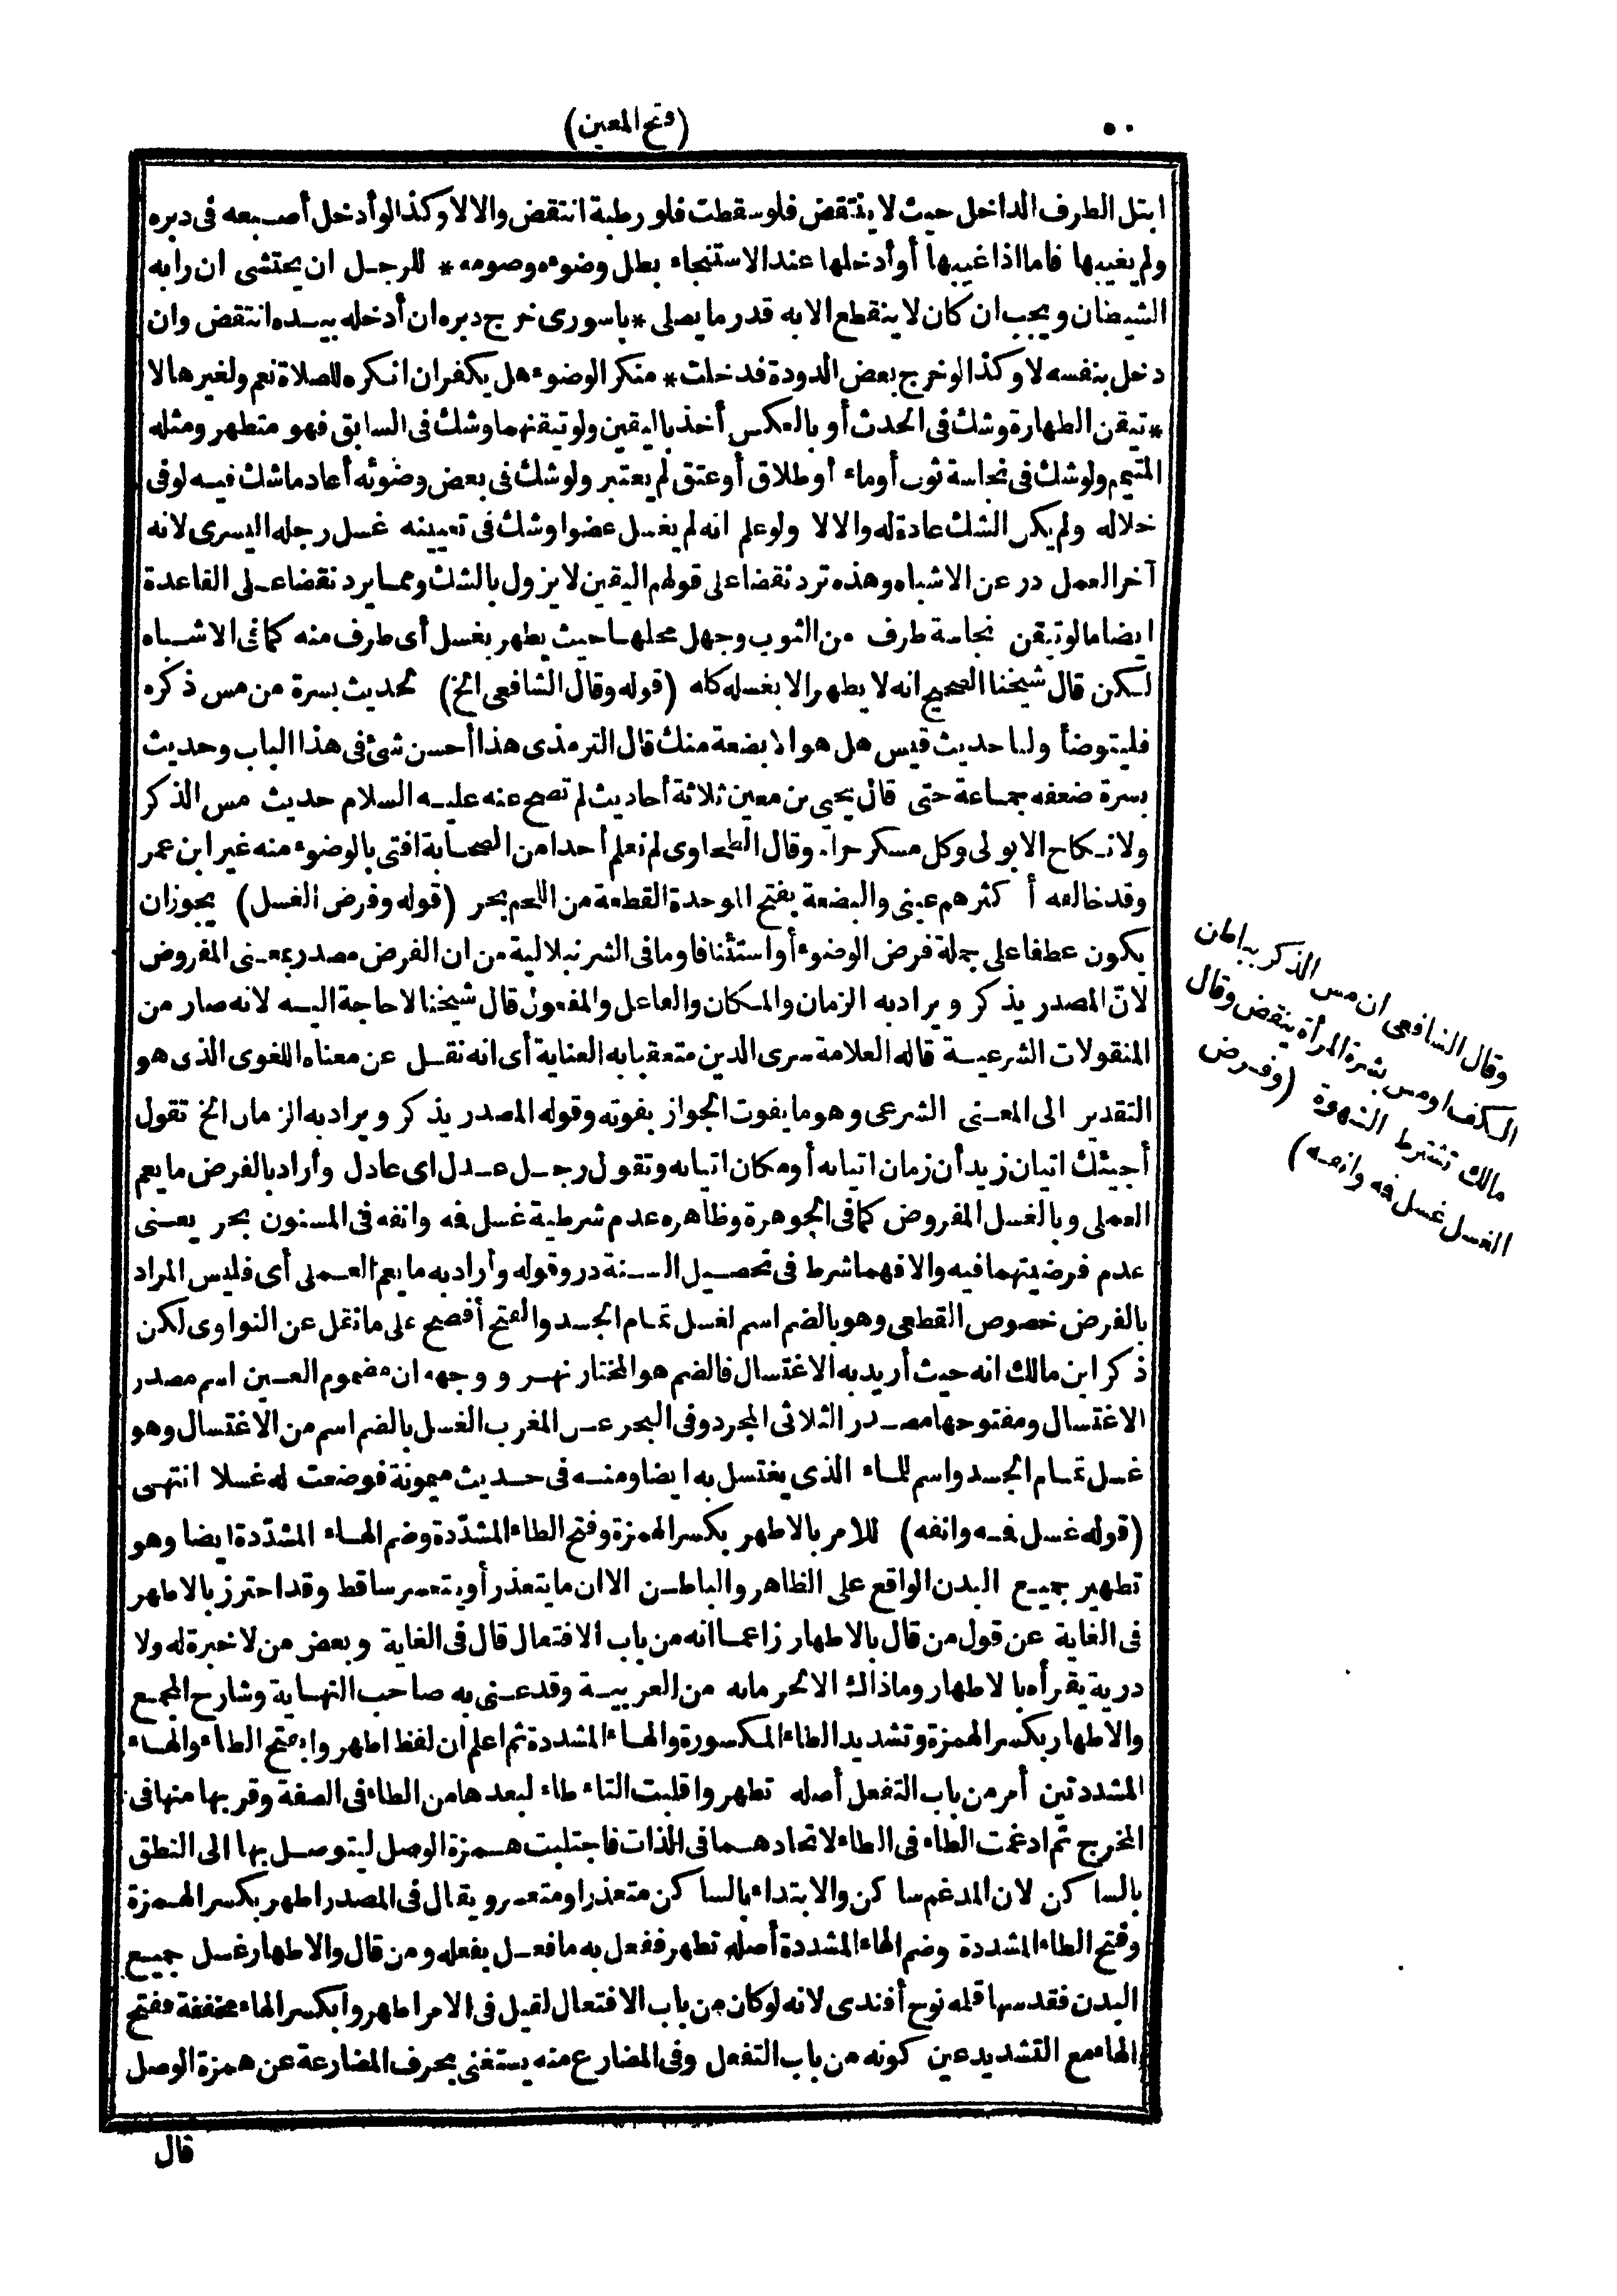 ٥٠
(فتح المعين)
ابتل الطرف الداخل حيث لا ينتقض فلو سقطت فلو رطبة انتقض والا لا وكذا لو أدخل أصبعه فى دبره
ولم يغيبها فاما اذا غيبها أو أدخلها عند الاستنجاء بطل وضوءه وصومه * للرجل ان يحتشى ان رابه
الشيطان ويجب ان كان لا ينقطع الا به قدر ما يصلى * باسورى خرج دبره ان أدخله بيده انتقض وان
دخل بنفسه لا وكذا لو خرج بعض الدودة فدخلت * منكر الوضوء هل يكفر ان انكره للصلاة نعم ولغيرها لا
* تيقن الطهارة وشك فى الحدث أو بالعكس أخذ باليقين ولو تيقنهما وشك فى السابق فهو متطهر ومثله
المتيمم ولو شك فى نجاسة ثوب أو ماء أو طلاق أو عتق لم يعتبر ولو شك فى بعض وضوئه أعاد ما شك فيه لو فى
خلاله ولم يكن الشك عادة له والا لا ولو علم انه لم يغسل عضوا وشك فى تعيينه غسل رجله اليسرى لانه
آخر العمل در عن الاشباه وهذه ترد نقضا على قولهم اليقين لا يزول بالشك ومما يرد نقضا على القاعدة
ايضا ما لو تيقن نجاسة طرف من الثوب وجهل محلها حيث يطهر بغسل أى طرف منه كما فى الاشباه
لكن قال شيخنا الصحيح انه لا يطهر الا بغسله كله (قوله وقال الشافعى الخ) لحديث بسرة من مس ذكره
فليتوضأ ولنا حديث قيس هل هو الا بضعة منك قال الترمذى هذا أحسن شئ فى هذا الباب وحديث
بسرة ضعفه جماعة حتى قال يحيى بن معين ثلاثة أحاديث لم تصح عنه عليه السلام حديث مس الذكر
ولا نكاح الا بولى وكل مسكر حرام وقال الطحاوى لم نعلم أحدا من الصحابة افتى بالوضوء منه غير ابن عمر
وقد خالفه أ كثرهم عينى والبضعة بفتح الموحدة القطعة من اللحم بحر (قوله وفرض الغسل) يجوز ان
يكون عطفا على جملة فرض الوضوء أو استئنافا وما فى الشرنبلالية من ان الفرض مصدر بمعنى المفروض
لانّ المصدر يذكر ويراد به الزمان والمكان والفاعل والمفعول قال شيخنا لا حاجة اليه لانه صار من
المنقولات الشرعية قاله العلامة سرى الدين متعقبا به العناية أى انه نقل عن معناه اللغوى الذى هو
التقدير الى المعنى الشرعى وهو ما يفوت الجواز بفوته وقوله المصدر يذكر ويراد به الزمان الخ تقول
أجيئك اتيان زيد أن زمان اتيانه أو مكان اتيانه وتقول رجل عدل اى عادل وأراد بالفرض ما يعم
العملى وبالغسل المفروض كما فى الجوهرة وظاهره عدم شرطية غسل فه وانفه فى المسنون بحر يعنى
عدم فرضيتهما فيه والا فهما شرط فى تحصيل السنة در وقوله وأراد به ما يعم العملى أى فليس المراد
بالفرض خصوص القطعى وهو بالضم اسم لغسل تمام الجسد والفتح أفصح على ما نقل عن النواوى لكن
ذكر ابن مالك انه حيث أريد به الاغتسال فالضم هو المختار نهر ووجهه ان مضموم العين اسم مصدر
الاغتسال ومفتوحها مصدر الثلاثى المجرد وفى البحر عن المغرب الغسل بالضم اسم من الاغتسال وهو
غسل تمام الجسد واسم للماء الذى يغتسل به ايضا ومنه فى حديث ميمونة فوضعت له غسلا انتهى
(قوله غسل فه وانفه) للامر بالاطهر بكسر الهمزة وفتح الطاء المشدّدة وضم الهاء المشدّدة ايضا وهو
تطهير جميع البدن الواقع على الظاهر والباطن الا ان ما يتعذر أو يتعسر ساقط وقد احترز بالاطهر
فى الغاية عن قول من قال بالاطهار زاعما انه من باب الافتعال قال فى الغاية وبعض من لا خبرة له ولا
درية يقرأه بالاطهار وما ذاك الا لحرمانه من العربية وقد عنى به صاحب النهاية وشارح المجمع
والاطهار بكسر الهمزة وتشديد الطاء المكسورة والهاء المشددة ثم اعلم ان لفظ اطهروا بفتح الطاء والهاء
المشددتين أمر من باب التفعل أصله تطهروا قلبت التاء طاء لبعدها من الطاء فى الصفة وقربها منها فى
المخرج ثم ادغمت الطاء فى الطاء لاتحادهما فى الذات فاجتلبت همزة الوصل ليتوصل بها الى النطق
بالساكن لان المدغم ساكن والابتداء بالساكن متعذر او متعسر ويقال فى المصدر اطهر بكسر الهمزة
وفتح الطاء المشددة وضم الهاء المشددة أصله تطهر ففعل به ما فعل بفعله ومن قال والاطهار غسل جميع
البدن فقد سها قاله نوح أفندى لانه لو كان من باب الافتعال لقيل فى الامر اطهروا بكسر الهاء مخففة ففتح
الهاء مع التشديد عين كونه من باب التفعل وفى المضارع منه يستغنى بحرف المضارعة عن همزة الوصل
قال
وقال الشافعى ان مس الذكر بباطن
الكف او مس بشرة المرأة ينقض وقال
مالك تشترط الشهوة (وفرض
الغسل غسل فه وانفه)